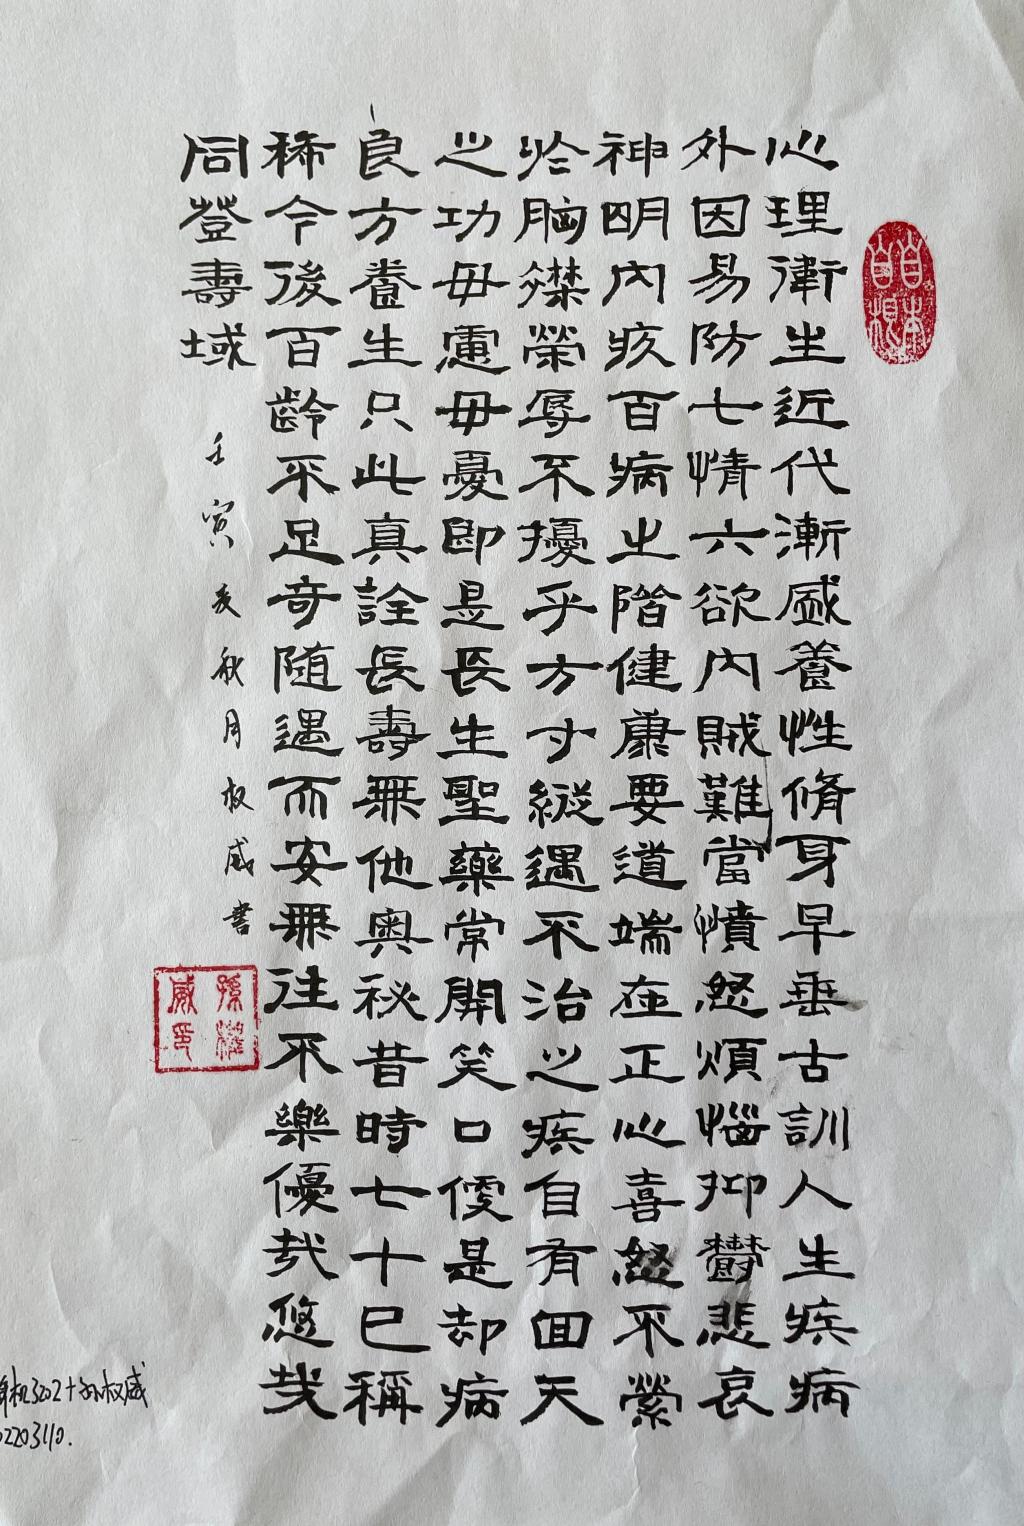 心理衛生近代漸盛養性脩身早垂古訓人生疾病
外因易防七情六欲內賊難當憤怒煩惱抑鬱悲哀
神明內疚百病之階健康要道端在正心喜怒不縈
於胸襟榮辱不擾乎方寸縱遇不治之疾自有回天
之功毋慮毋憂即是長生聖藥常開笑口便是却病
良方養生只此真詮長壽無他奧秘昔時七十已稱
稀今後百齡不足奇隨遇而安無往不樂優哉悠哉
同登壽域
壬寅年秋月权威書
孫權威印
3202十孙权威
02203110.